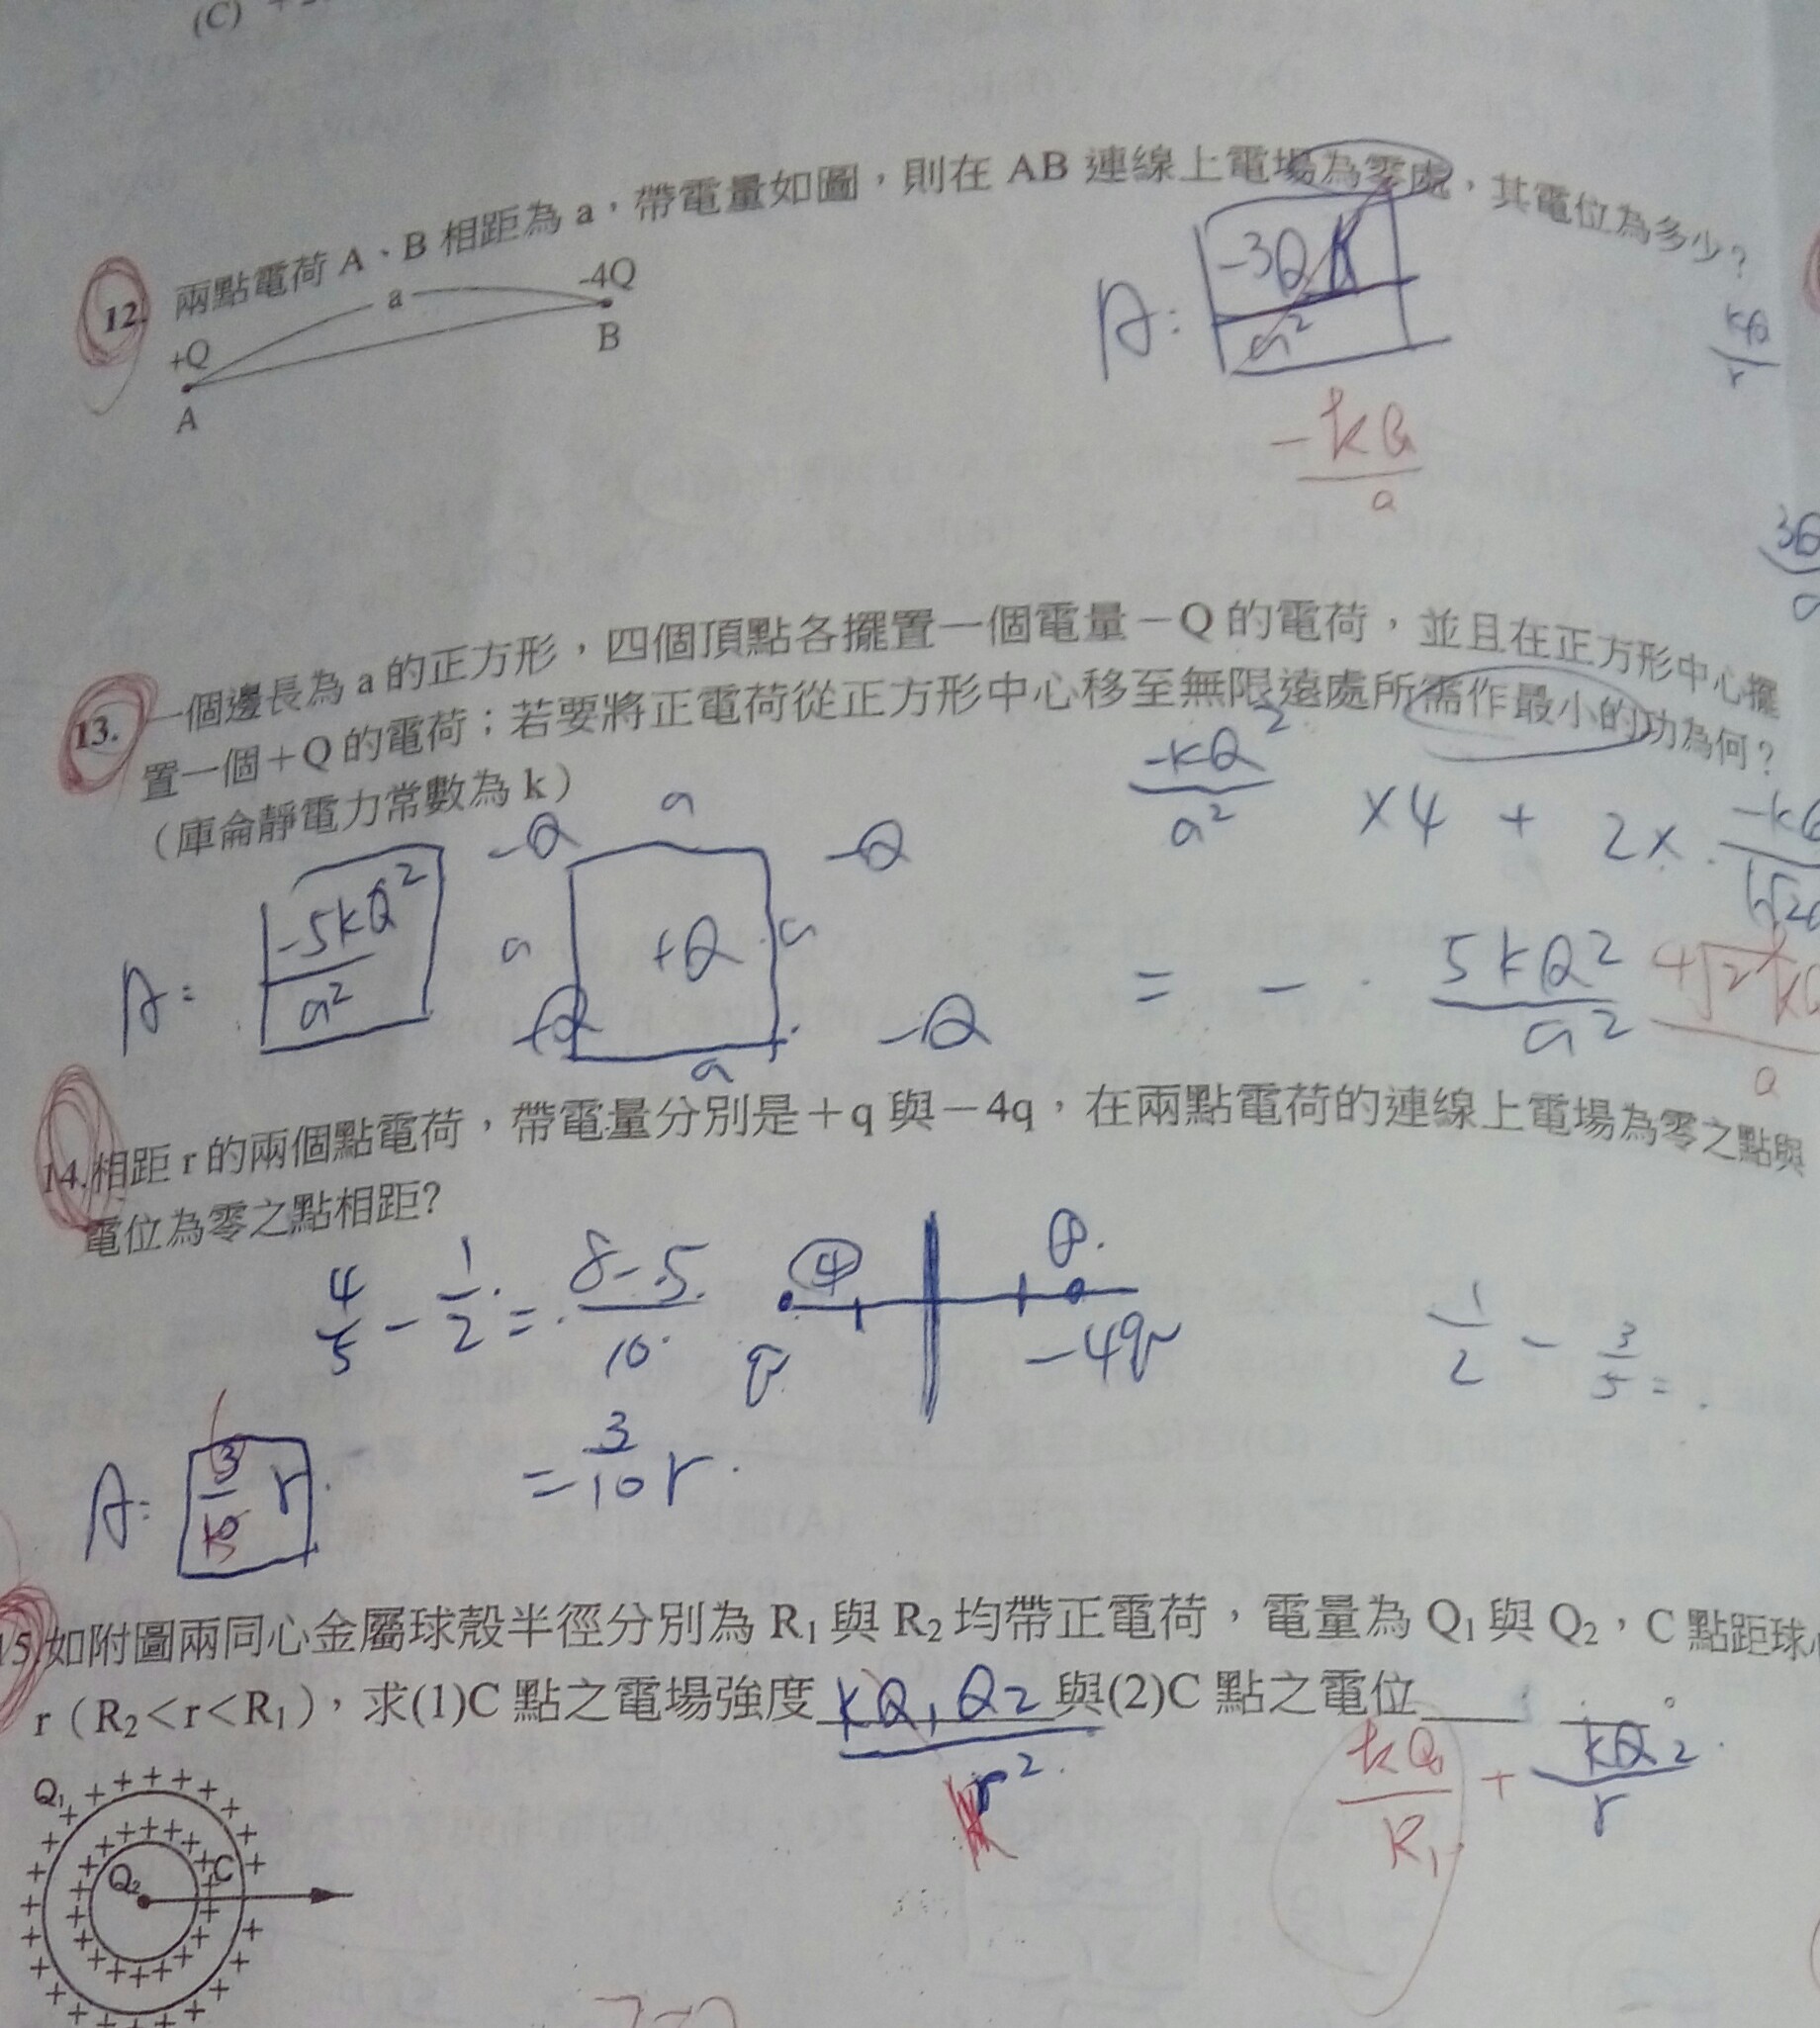 (C)
12. 兩點電荷 A、B 相距為 a，帶電量如圖，則在 AB 連線上電場為零處，其電位為多少？
+Q
a
-4Q
A
B
A: -3QK/a²
kQ/r
-kQ/a
13. 一個邊長為 a 的正方形，四個頂點各擺置一個電量－Q 的電荷，並且在正方形中心擺
置一個＋Q 的電荷；若要將正電荷從正方形中心移至無限遠處所需作最小的功為何？
（庫侖靜電力常數為 k）
-kQ²/a² ×4 + 2×
A: -5kQ²/a²
-Q a -Q
a +Q a
-Q a -Q
= - 5kQ²/a²
14. 相距 r 的兩個點電荷，帶電量分別是＋q 與－4q，在兩點電荷的連線上電場為零之點與
電位為零之點相距?
4/5 - 1/2 = 8-5/10
q
-4q
1/2 - 3/5 =
= 3/10 r
A: r
15. 如附圖兩同心金屬球殼半徑分別為 R₁ 與 R₂ 均帶正電荷，電量為 Q₁ 與 Q₂，C 點距球
r（R₂<r<R₁），求(1)C 點之電場強度 kQ₁Q₂/r² 與(2)C 點之電位 kQ₁/R₁ + kQ₂/r 。
Q₁
Q₂
C